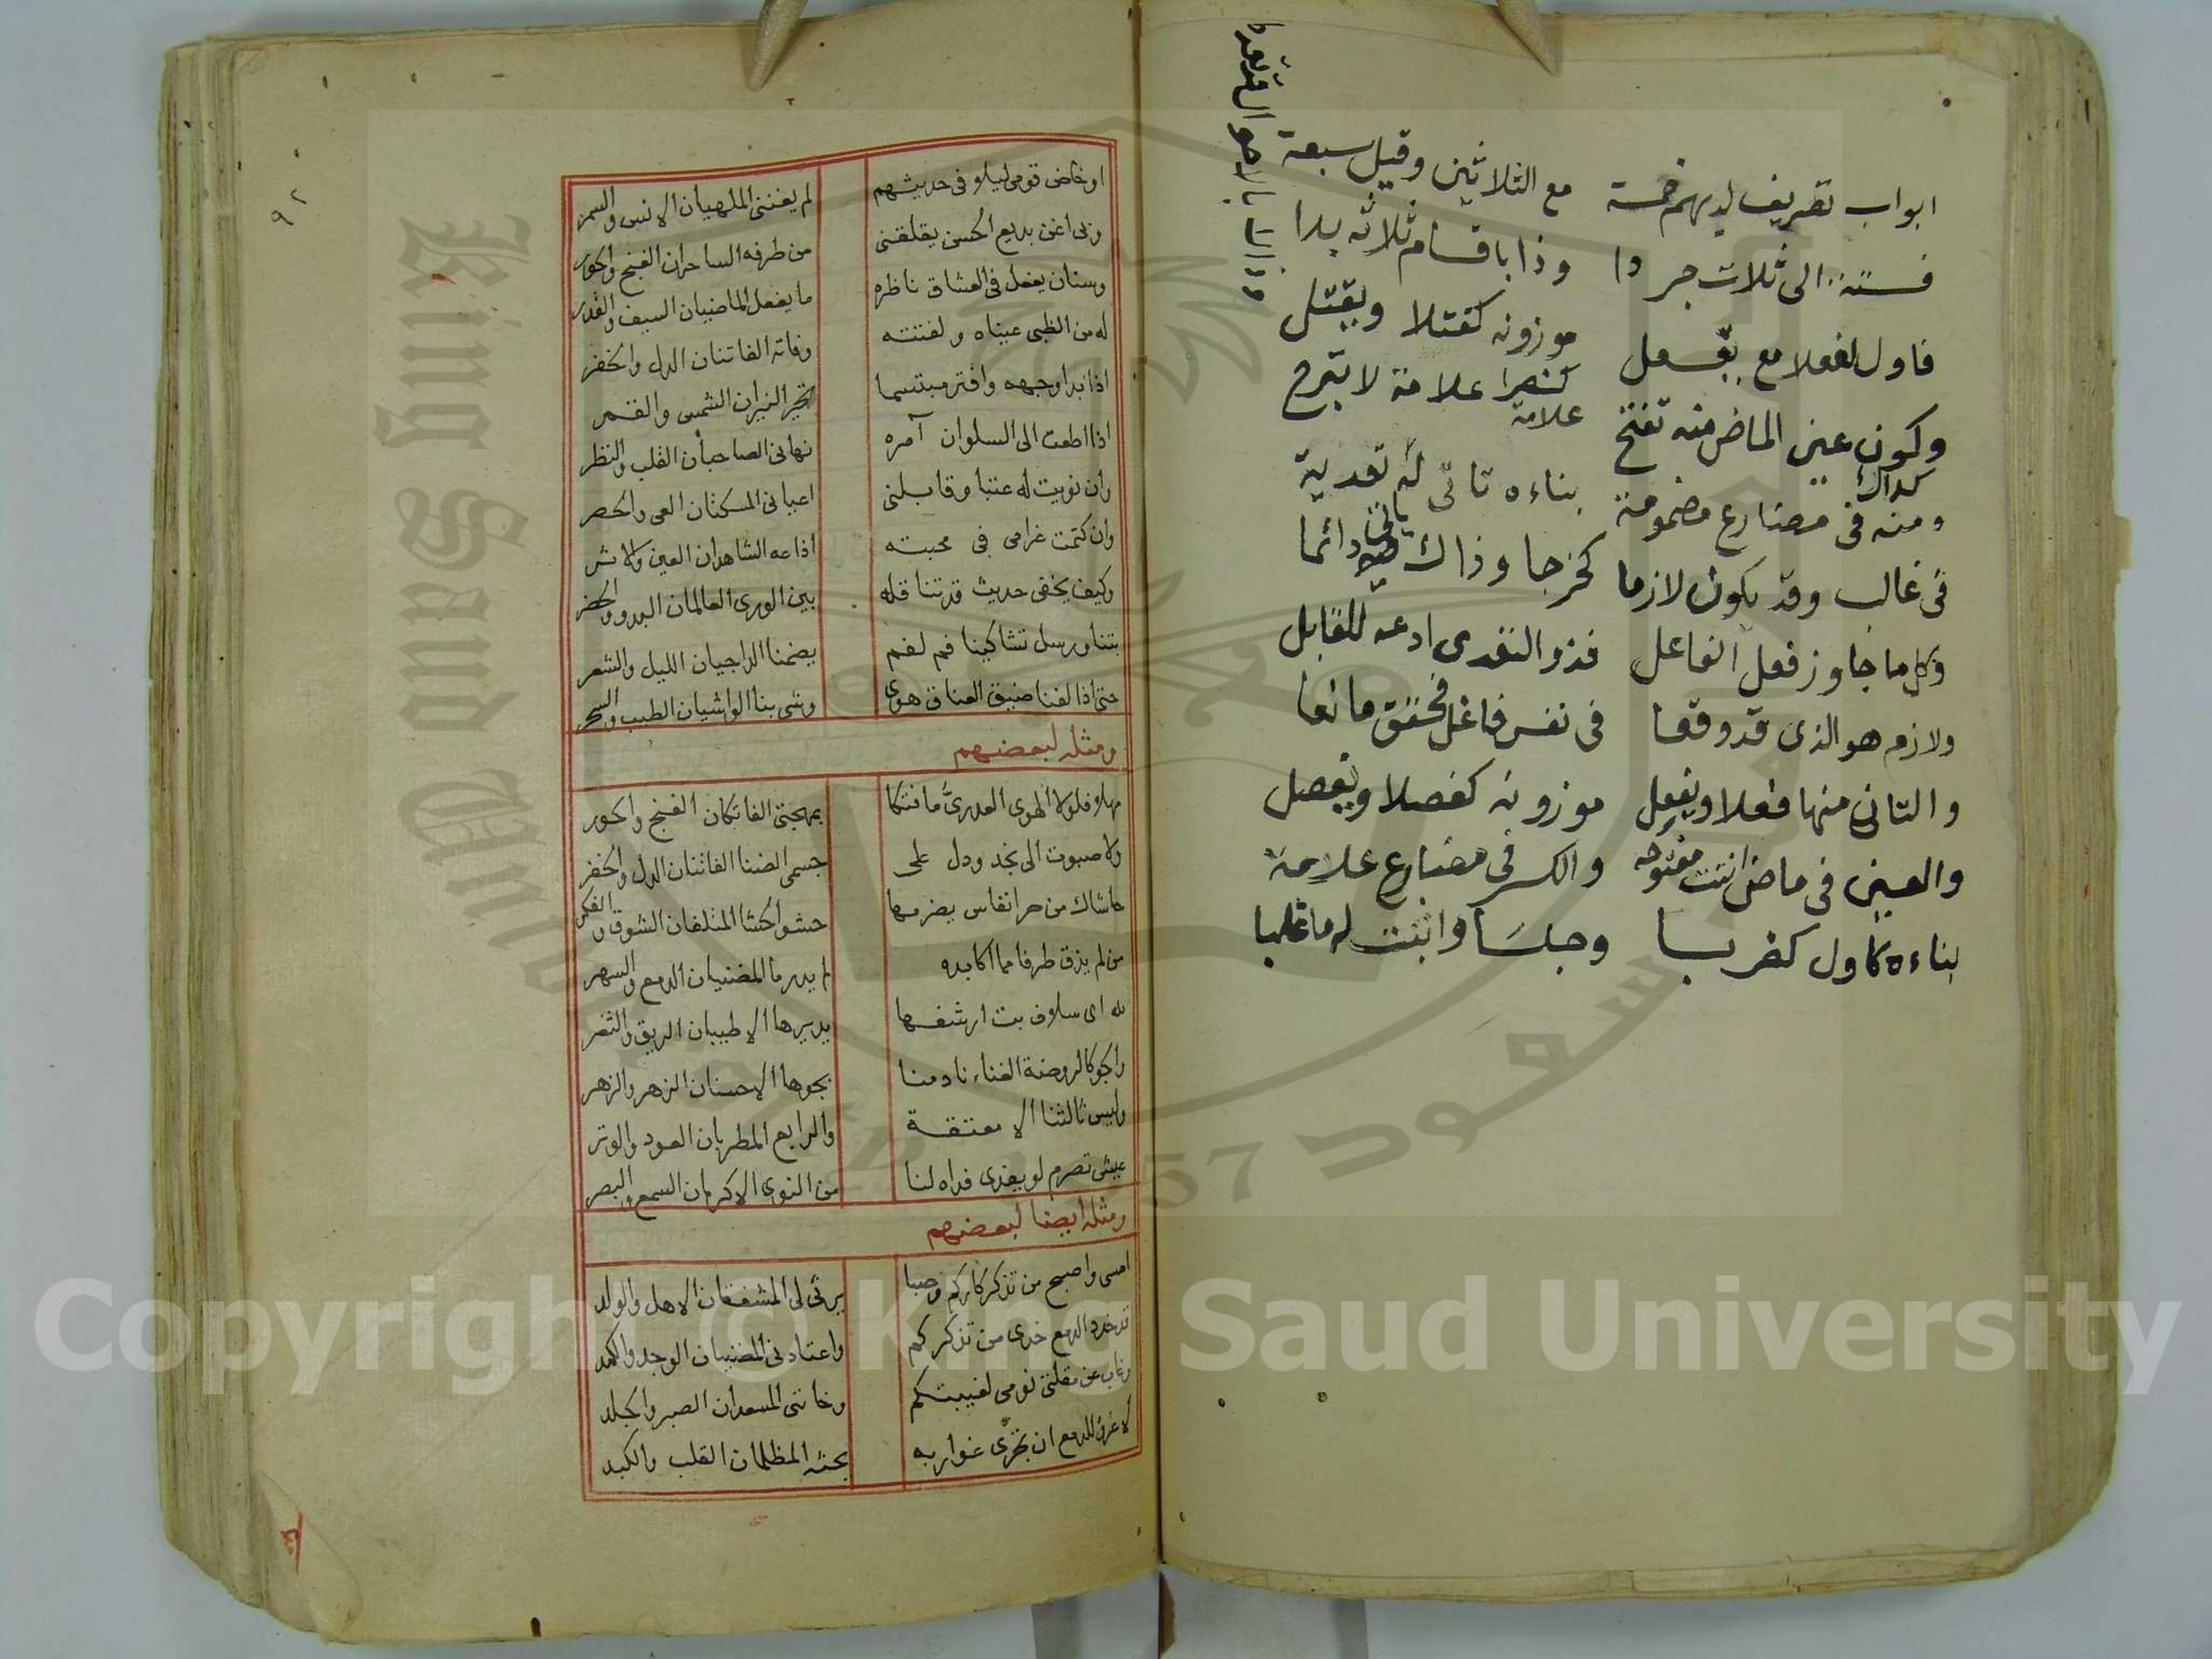 ابواب تصريف لديهم خمسة مع الثلاثين وقيل سبعة
فستة الى ثلاث جردا وذا باقسام ثلاثة بدا
فاول لفعلا مع يفعل موزونه كقتلا ويقتل
وكون عين الماض منه تفتح كنصرا علامة لا تبرح
علامة
كذاك
ومنه فى مضارع مضمومة بناءه تاتى له تعدية
فى غالب وقد يكون لازما كخرجا وذاك دائما
وكل ما جاوز فعل الفاعل فذو التعدى ادعه للقابل
ولازم هو الذى قد وقعا فى نفس فاعل فحقق مانعا
والثانى منها فعلا ويفعل موزونه كفصلا ويفصل
والعين فى ماض اتت مفتوحه والكسر فى مضارع علامة
بناءه كاول كضربا وجلسا وابنت له ما غلبا
٩٢
او خاض قومى ليلا فى حديثهم لم يغننى الملهيان الانس والسمر
وبى اغن بديع الحسن يقلقنى من طرفه الساحران الغنج والحور
وسنان يفعل فى العشاق ناظره ما يفعل الماضيان السيف والقدر
له من الظبى عيناه ولفتته وفاته الفاتنان الدل والخفر
اذا بدا وجهه وافتر مبتسما تحير النيران الشمس والقمر
اذا اطعت الى السلوان آمره نهانى الصاحبان القلب والنظر
وان نويت له عتبا وقابلنى اعيانى المسكتان العى والحصر
وان كتمت غرامى فى محبته اذاعه الشاهدان العين والاثر
وكيف يخفى حديث قد تناقله بين الورى العالمان البدو والحضر
بتنا ورسل تشاكينا فم لفم يضمنا الداجيان الليل والشعر
حتى اذا لفنا ضيق العناق هوى وشى بنا الواشيان الطيب والسحر
ومثله لبعضهم
مهلا فلولا الهوى العذرى ما فتكا بمهجتى الفاتكان الغنج والحور
ولا صبوت الى نجد ودل على جسمى الضنا الفاتنان الدل والخفر
حاشاك من حر انفاس يضرمها حشو الحشا المتلفان الشوق والفكر
من لم يذق طرفا مما اكابده لم يدر ما المضنيان الدمع والسهر
لله اى سلاف بت ارشفها يديرها الاطيبان الريق والثغر
والجو كالروضة الغناء نادمنا بجوها الاحسنان الزهر والزهر
وليس ثالثنا الا معتقة والرابع المطربان العود والوتر
عيش تصرم لو يفدى فداه لنا من النوى الاكرمان السمع والبصر
ومثله ايضا لبعضهم
امسى واصبح من تذكاركم وصبا يرثى لى المشفقان الاهل والولد
قد خدد الدمع خدى من تذكركم واعتادنى المضنيان الوجد والكمد
وغاب عن مقلتى نومى لغيبتكم وخاننى المسعدان الصبر والجلد
لا غرو للدمع ان تجرى غواربه بحثه المظلمان القلب والكبد